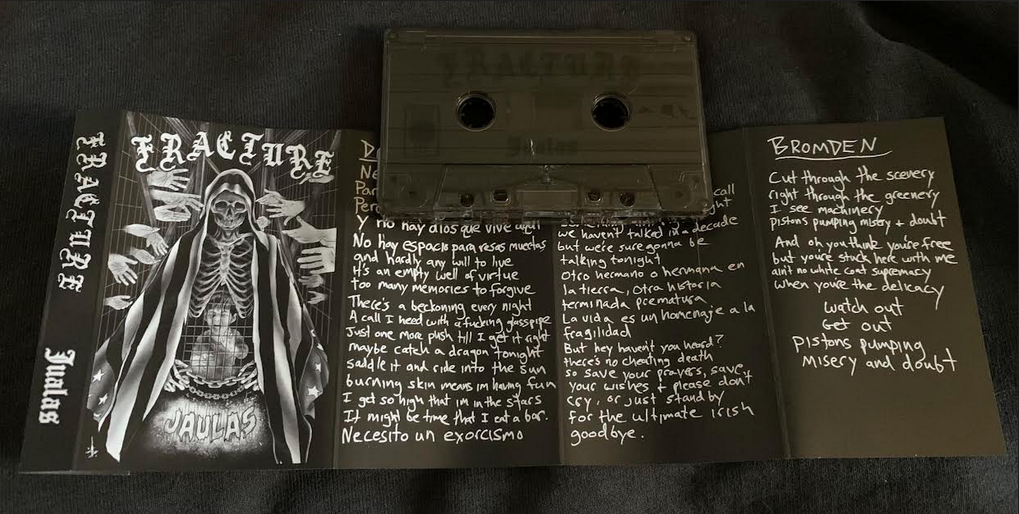 FRACTURE
Jaulas
FRACTURE
JAULAS
FRACTURE
Jaulas
Y no hay dios que vive aqui
No hay espacio para rosas muertas
and hardly any will to live
It's an empty well of virtue
too many memories to forgive
There's a beckoning every night
A call I need with a fucking glass pipe
Just one more push till I get it right
maybe catch a dragon tonight
saddle it and ride into the sun
burning skin means im having fun
I get so high that im in the stars
It might be time that I eat a bar.
Necesito un exorcismo
call
we haven't talked in a decade
but we're sure gonna be
talking tonight
Otro hermano o hermana en
la tierra, otra historia
terminada prematura
La vida es un homenaje a la
fragilidad
But hey haven't you heard?
there's no cheating death
so save your prayers, save
your wishes + please don't
cry, or just stand by
for the ultimate irish
goodbye.
BROMDEN
Cut through the scenery
right through the greenery
I see machinery
pistons pumping misery + doubt
And oh you think you're free
but you're stuck here with me
ain't no white coat supremacy
when you're the delicacy
Watch out
Get out
Pistons pumping
Misery and doubt